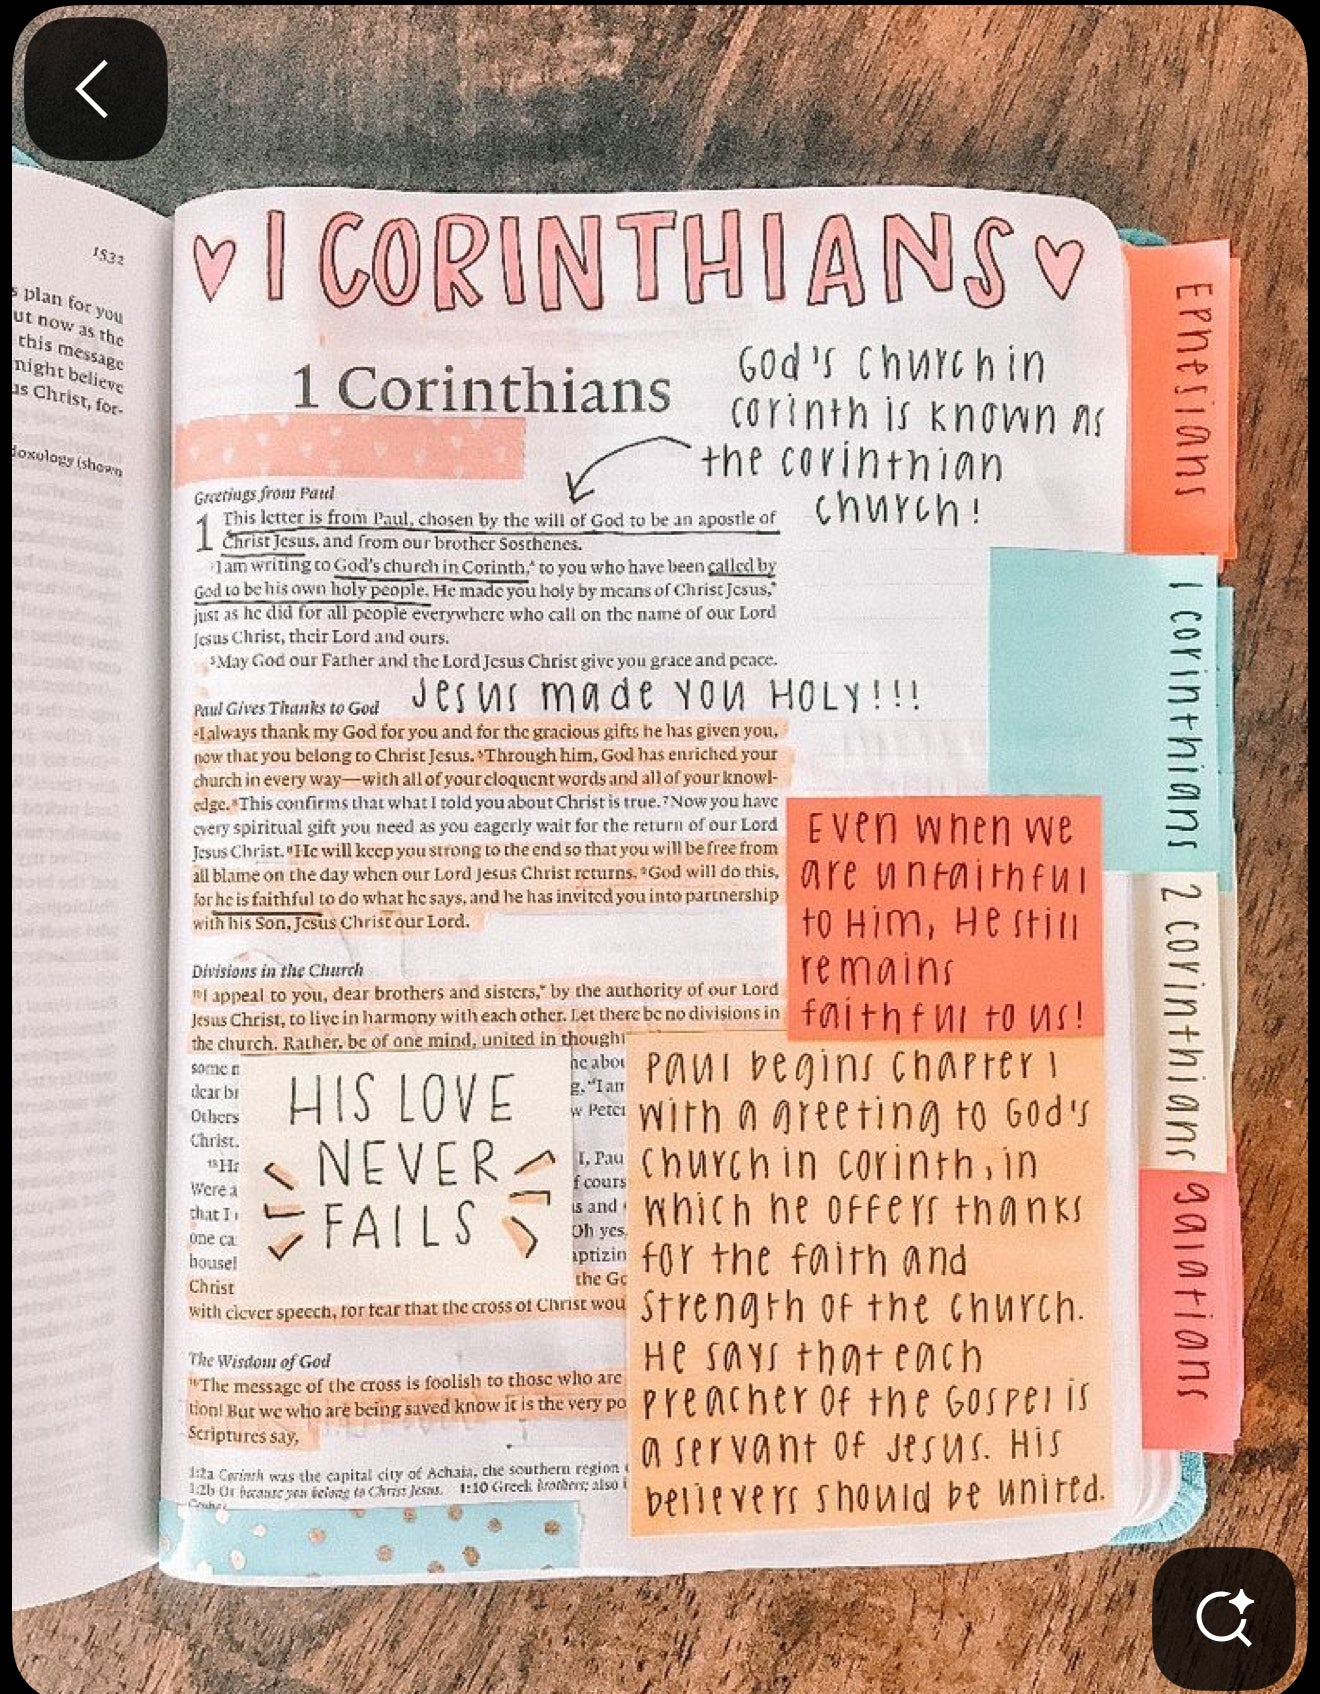 1532
s plan for you
ut now as the
this message
might believe
us Christ, for-
doxology (shown
1 CORINTHIANS
1 Corinthians
God's Church in
Corinth is known as
the Corinthian
Church!
Greetings from Paul
1 This letter is from Paul, chosen by the will of God to be an apostle of
Christ Jesus, and from our brother Sosthenes.
²I am writing to God's church in Corinth,* to you who have been called by
God to be his own holy people. He made you holy by means of Christ Jesus,*
just as he did for all people everywhere who call on the name of our Lord
Jesus Christ, their Lord and ours.
³May God our Father and the Lord Jesus Christ give you grace and peace.
Jesus made you HOLY!!!
Paul Gives Thanks to God
⁴I always thank my God for you and for the gracious gifts he has given you,
now that you belong to Christ Jesus. ⁵Through him, God has enriched your
church in every way—with all of your eloquent words and all of your knowl-
edge. ⁶This confirms that what I told you about Christ is true. ⁷Now you have
every spiritual gift you need as you eagerly wait for the return of our Lord
Jesus Christ. ⁸He will keep you strong to the end so that you will be free from
all blame on the day when our Lord Jesus Christ returns. ⁹God will do this,
for he is faithful to do what he says, and he has invited you into partnership
with his Son, Jesus Christ our Lord.
Even when we
are unfaithful
to Him, He still
remains
faithful to us!
Divisions in the Church
¹⁰I appeal to you, dear brothers and sisters,* by the authority of our Lord
Jesus Christ, to live in harmony with each other. Let there be no divisions in
the church. Rather, be of one mind, united in thought
some
dear br
Others
Christ.
Were a
that I
one ca
housel
Christ
HIS LOVE
NEVER
FAILS
he abou
g. ¹²"I am
w Peter
I, Pau
f cours
s and
Oh yes,
aptizin
the Go
with clever speech, for fear that the cross of Christ wou
The Wisdom of God
¹⁸The message of the cross is foolish to those who are
tion! But we who are being saved know it is the very po
Scriptures say,
1:2a Corinth was the capital city of Achaia, the southern region
1:2b Or because you belong to Christ Jesus. 1:10 Greek brothers; also i
Paul begins Chapter 1
with a greeting to God's
Church in Corinth, in
which he offers thanks
for the faith and
strength of the church.
He says that each
preacher of the Gospel is
a servant of Jesus. His
believers should be united.
Ephesians
1 Corinthians
2 Corinthians
galatians